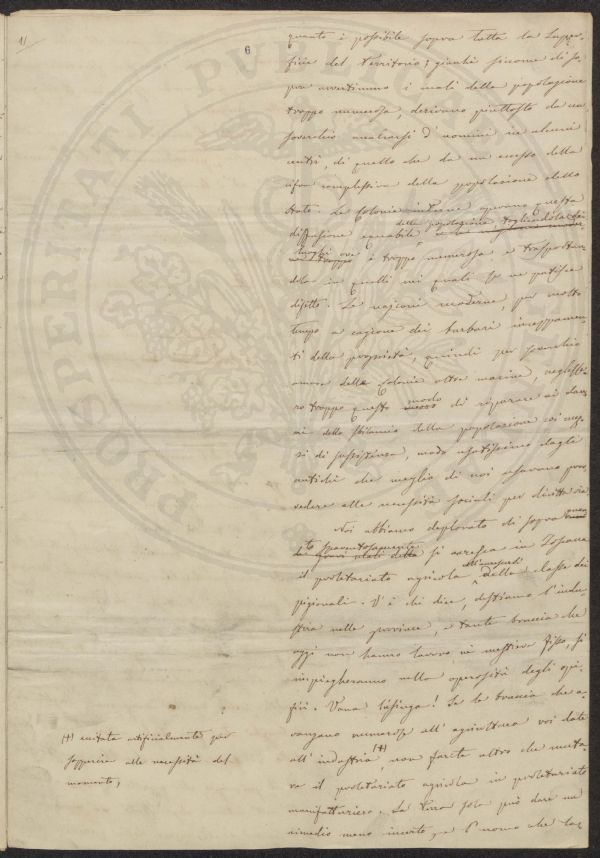 11
6
quanto è possibile sopra tutta la Super-
ficie del Territorio; giacchè siccome di so-
pra avvertimmo i mali della popolazione
troppo numerosa, derivano piuttosto da un
soverchio accalcarsi d'uomini in alcuni
centri, di quello che da un eccesso della
cifra complessiva della popolazione dello
Stato. Le Colonie interne operano questa
diffusione equabile, della popolazione togliendola dai
luoghi ove è troppo numerosa e trasportan-
dola in quelli nei quali se ne patisce
difetto. Le nazioni moderne, per molto
tempo a cagione dei barbari inceppamen-
ti della proprietà, quindi per soverchio
amore delle Colonie oltre marine, neglesse-
ro troppo questo modo di riparare ai dan-
ni dello sbilancio della popolazione coi mez-
zi di sussistenza, modo usatissimo dagli
antichi che meglio di noi usavano prov-
vedere alle necessità sociali per diritta via
Noi abbiamo deplorato di sopra quan-
to spaventosamente si accresca in Toscana
il proletariato agricola nell'accrescersi della classe dei
pigionali. V'è chi dice, destiamo l'indu-
stria nelle provincie, e tante braccia che
oggi non hanno lavoro nè mestiere fisso, si
impiegheranno nella operosità degli opi-
fici. Vana lusinga! Se le braccia che a-
vanzano numerose all'agricoltura voi date
all'industria (+), non farete altro che muta-
re il proletariato agricola in proletariato
manifatturiero. La Terra sola può dare un
rimedio meno incerto, e l'uomo che la-
(+) eccitata artificialmente per
sopperire alle necessità del
momento,
PROSPERITATI PUBLICAE